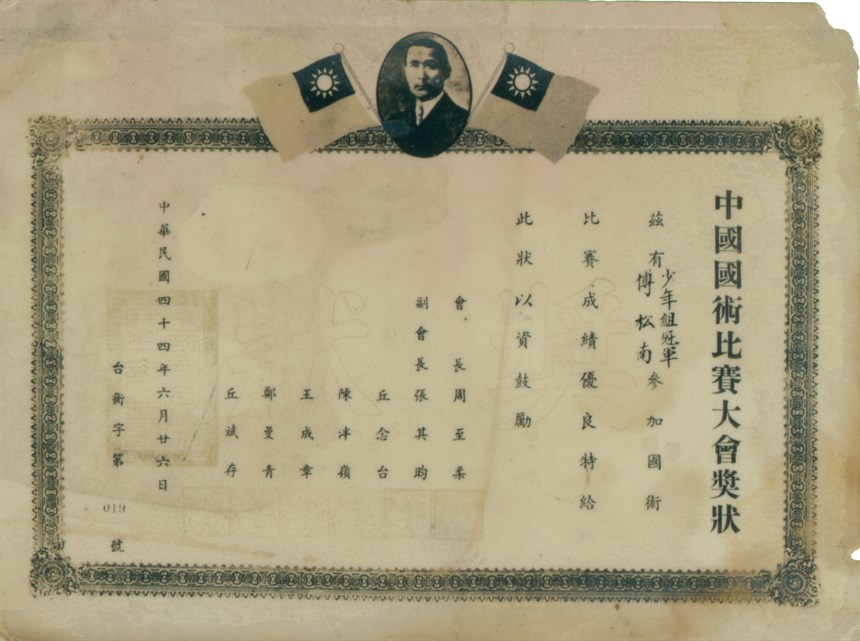 中國國術比賽大會獎狀
茲有少年組冠軍傅松南參加國術
比賽成績優良特給
此狀以資鼓勵
會長周至柔
副會長張其昀
丘念台
陳泮嶺
王成章
鄭曼青
丘誠存
中華民國四十四年六月廿六日
台術字第019號